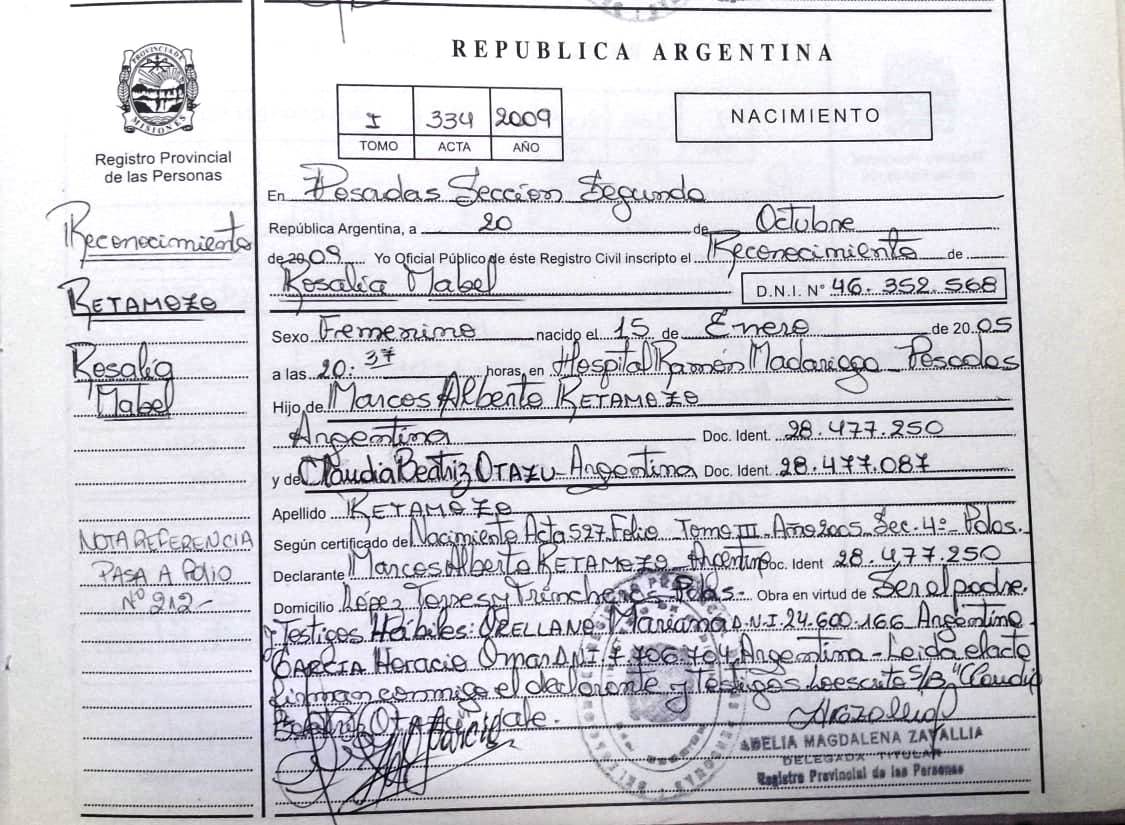 REPUBLICA ARGENTINA
PROVINCIA DE
MISIONES
Registro Provincial
de las Personas
I 334 2009
TOMO ACTA AÑO
NACIMIENTO
Reconocimiento
RETAMOZO
Rosalia
Mabel
NOTA REFERENCIA
PASA A FOLIO
Nº 212-
En Posadas Sección Segunda
República Argentina, a 20 de Octubre
de 2009 Yo Oficial Público de éste Registro Civil inscripto el Reconocimiento de
Rosalia Mabel D.N.I. N° 46.352.568
Sexo Femenino nacido el 15 de Enero de 2005
a las 20:37 horas, en Hospital Ramón Madariaga Posadas
Hijo de Marcos Alberto RETAMOZO
Argentina Doc. Ident. 28.477.250
y de Claudia Beatriz OTAZU Argentina Doc. Ident. 28.477.087
Apellido RETAMOZO
Según certificado de Nacimiento Acta 527 Folio Tomo III. Año 2005. Sec. 4º Pdas.
Declarante Marcos Alberto RETAMOZO Argentino Doc. Ident 28.477.250
Domicilio López Torres y Trincheras Pdas- Obra en virtud de Ser el padre.
y Testigos Hábiles: ORELLANO Mariana D.N.I. 24.600.166 Argentina
GARCIA Horacio Omar D.N.I. 7.706.704 Argentina - Leida el acta
firman conmigo el declarante y testigos. Lo escrito S/B "Claudia
Beatriz OTAZU" vale.
Garcia
ABELIA MAGDALENA ZAVALLIA
DELEGADA TITULAR
Registro Provincial de las Personas